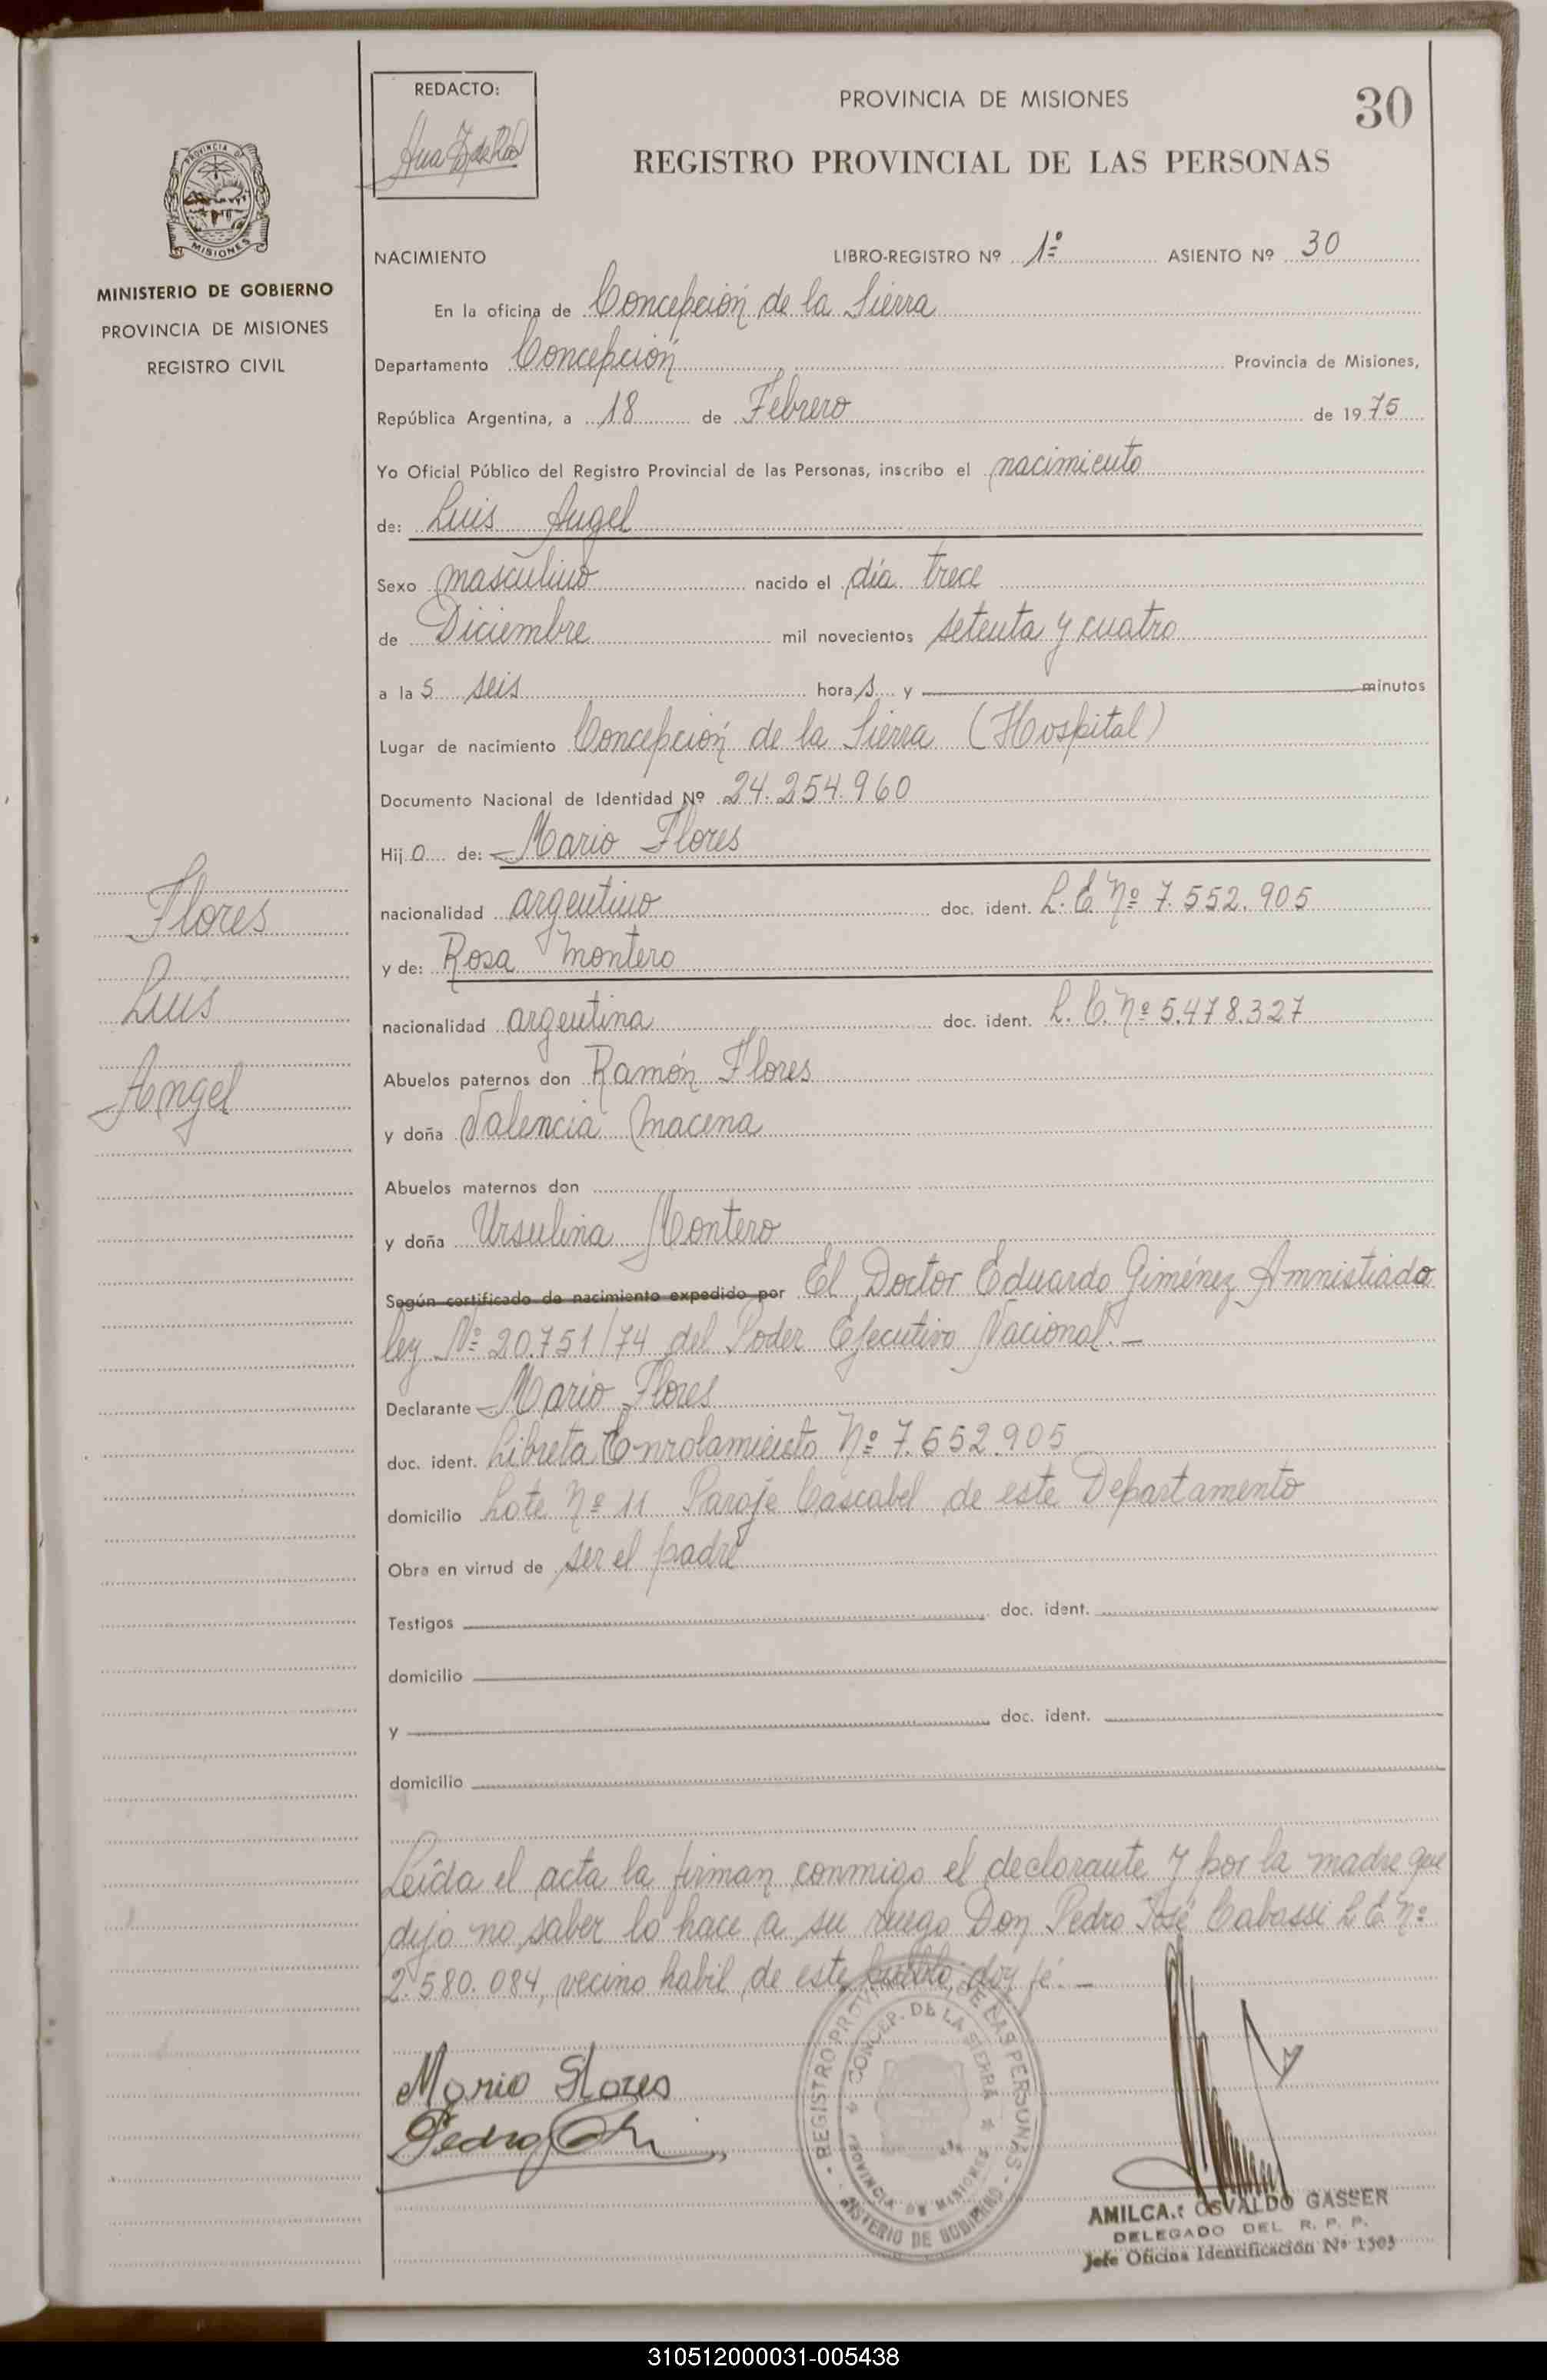 REDACTO:
PROVINCIA DE MISIONES
30
REGISTRO PROVINCIAL DE LAS PERSONAS
PROVINCIA DE
MISIONES
MINISTERIO DE GOBIERNO
PROVINCIA DE MISIONES
REGISTRO CIVIL
NACIMIENTO LIBRO-REGISTRO Nº 1º ASIENTO Nº 30
En la oficina de Concepción de la Sierra
Departamento Concepción Provincia de Misiones,
República Argentina, a 18 de Febrero de 1975
Yo Oficial Público del Registro Provincial de las Personas, inscribo el nacimiento
de: Luis Angel
Sexo masculino nacido el día trece
de Diciembre mil novecientos setenta y cuatro
a las seis horas y minutos
Lugar de nacimiento Concepción de la Sierra (Hospital)
Documento Nacional de Identidad Nº 24.254.960
Hijo de: Mario Flores
nacionalidad argentino doc. ident. L.E. Nº 7.552.905
y de: Rosa Montero
nacionalidad argentina doc. ident. L.C. Nº 5.478.327
Abuelos paternos don Ramón Flores
y doña Valencia Macena
Abuelos maternos don
y doña Ursulina Montero
Según certificado de nacimiento expedido por El Doctor Eduardo Giménez Amnistiado
ley Nº 20.751/74 del Poder Ejecutivo Nacional.-
Declarante Mario Flores
doc. ident. Libreta Enrolamiento Nº 7.552.905
domicilio Lote Nº 11 Paraje Cascabel de este Departamento
Obra en virtud de ser el padre
Testigos doc. ident.
domicilio
y doc. ident.
domicilio
Flores
Luis
Angel
Leída el acta la firman conmigo el declarante y por la madre que
dijo no saber lo hace a su ruego Don Pedro José Cabassi L.E. Nº
2.580.084, vecino habil de este pueblo, doy fé.-
Mario Flores
Pedro
REGISTRO PROVINCIAL DE LAS PERSONAS
CONCEP. DE LA SIERRA
PROVINCIA DE MISIONES
MINISTERIO DE GOBIERNO
AMILCAR OSVALDO GASSER
DELEGADO DEL R. P. P.
Jefe Oficina Identificación Nº 1503
310512000031-005438